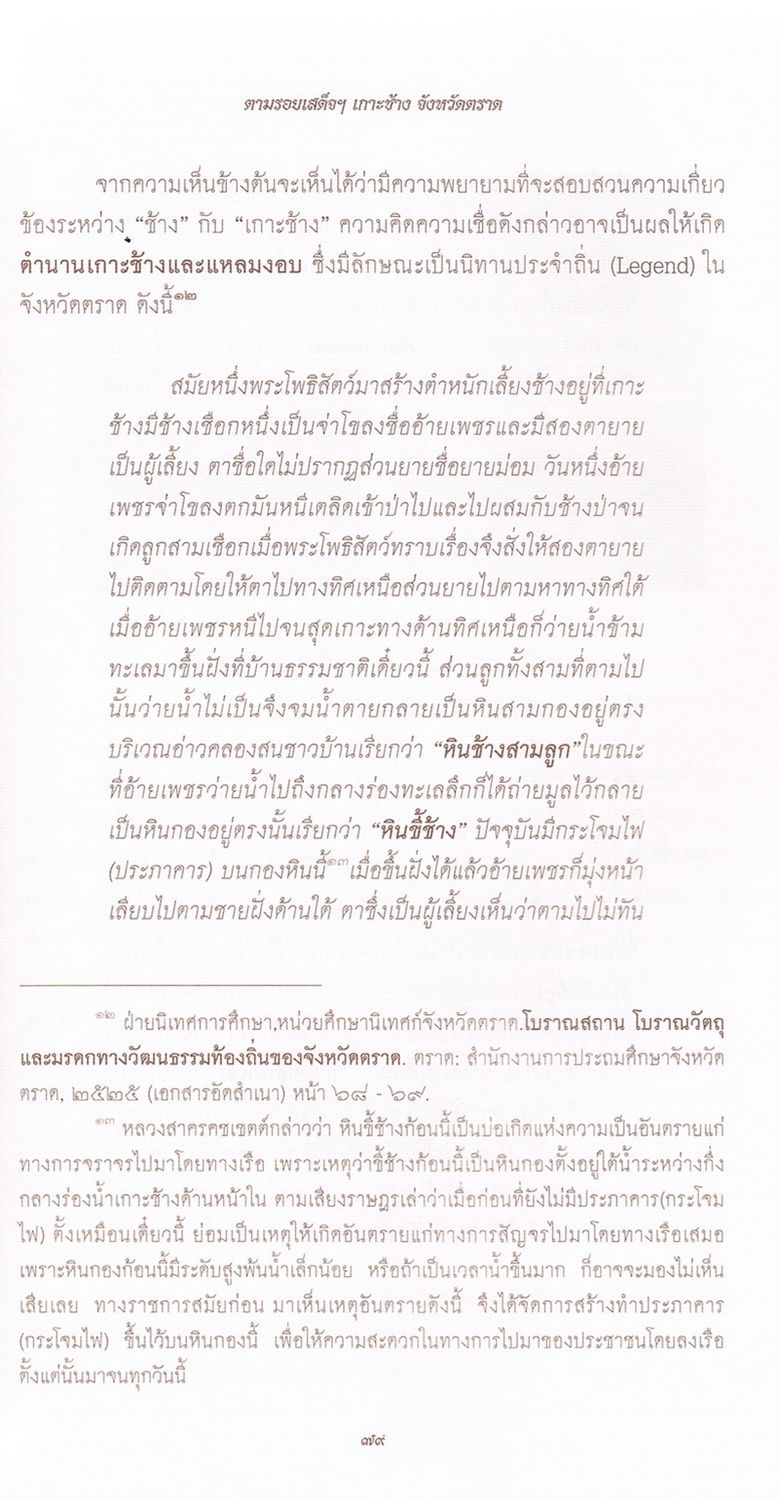 ตามรอยเสด็จฯ เกาะช้าง จังหวัดตราด
จากความเห็นข้างต้นจะเห็นได้ว่ามีความพยายามที่จะสอบสวนความเกี่ยว
ข้องระหว่าง “ช้าง” กับ “เกาะช้าง” ความคิดความเชื่อดังกล่าวอาจเป็นผลให้เกิด
ตำนานเกาะช้างและแหลมงอบ ซึ่งมีลักษณะเป็นนิทานประจำถิ่น (Legend) ใน
จังหวัดตราด ดังนี้๑๒
สมัยหนึ่งพระโพธิสัตว์มาสร้างตำหนักเลี้ยงช้างอยู่ที่เกาะ
ช้างมีช้างเชือกหนึ่งเป็นจ่าโขลงชื่ออ้ายเพชรและมีสองตายาย
เป็นผู้เลี้ยง ตาชื่อใดไม่ปรากฏส่วนยายชื่อยายม่อม วันหนึ่งอ้าย
เพชรจ่าโขลงตกมันหนีเตลิดเข้าป่าไปและไปผสมกับช้างป่าจน
เกิดลูกสามเชือกเมื่อพระโพธิสัตว์ทราบเรื่องจึงสั่งให้สองตายาย
ไปติดตามโดยให้ตาไปทางทิศเหนือส่วนยายไปตามหาทางทิศใต้
เมื่ออ้ายเพชรหนีไปจนสุดเกาะทางด้านทิศเหนือก็ว่ายน้ำข้าม
ทะเลมาขึ้นฝั่งที่บ้านธรรมชาติเดี๋ยวนี้ ส่วนลูกทั้งสามที่ตามไป
นั้นว่ายน้ำไม่เป็นจึงจมน้ำตายกลายเป็นหินสามกองอยู่ตรง
บริเวณอ่าวคลองสนชาวบ้านเรียกว่า “หินช้างสามลูก”ในขณะ
ที่อ้ายเพชรว่ายน้ำไปถึงกลางร่องทะเลลึกก็ได้ถ่ายมูลไว้กลาย
เป็นหินกองอยู่ตรงนั้นเรียกว่า “หินขี้ช้าง” ปัจจุบันมีกระโจมไฟ
(ประภาคาร) บนกองหินนี้๑๓เมื่อขึ้นฝั่งได้แล้วอ้ายเพชรก็มุ่งหน้า
เลียบไปตามชายฝั่งด้านใต้ ตาซึ่งเป็นผู้เลี้ยงเห็นว่าตามไปไม่ทัน
๑๒ ฝ่ายนิเทศการศึกษา,หน่วยศึกษานิเทศก์จังหวัดตราด.โบราณสถาน โบราณวัตถุ
และมรดกทางวัฒนธรรมท้องถิ่นของจังหวัดตราด. ตราด: สำนักงานการประถมศึกษาจังหวัด
ตราด, ๒๕๒๕ (เอกสารอัดสำเนา) หน้า ๖๘ - ๖๙.
๑๓ หลวงสาครคชเขตต์กล่าวว่า หินขี้ช้างก้อนนี้เป็นบ่อเกิดแห่งความเป็นอันตรายแก่
ทางการจราจรไปมาโดยทางเรือ เพราะเหตุว่าขี้ช้างก้อนนี้เป็นหินกองตั้งอยู่ใต้น้ำระหว่างกึ่ง
กลางร่องน้ำเกาะช้างด้านหน้าใน ตามเสียงราษฎรเล่าว่าเมื่อก่อนที่ยังไม่มีประภาคาร(กระโจม
ไฟ) ตั้งเหมือนเดี๋ยวนี้ ย่อมเป็นเหตุให้เกิดอันตรายแก่ทางการสัญจรไปมาโดยทางเรือเสมอ
เพราะหินกองก้อนนี้มีระดับสูงพ้นน้ำเล็กน้อย หรือถ้าเป็นเวลาน้ำขึ้นมาก ก็อาจจะมองไม่เห็น
เสียเลย ทางราชการสมัยก่อน มาเห็นเหตุอันตรายดังนี้ จึงได้จัดการสร้างทำประภาคาร
(กระโจมไฟ) ขึ้นไว้บนหินกองนี้ เพื่อให้ความสะดวกในทางการไปมาของประชาชนโดยลงเรือ
ตั้งแต่นั้นมาจนทุกวันนี้
๗๙